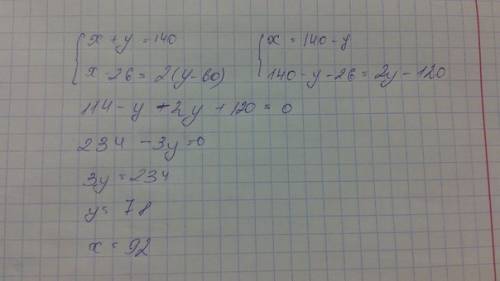 x + y = 140
x - 26 = 2(y - 60)
x = 140 - y
140 - y - 26 = 2y - 120
114 - y - 2y + 120 = 0
234 - 3y = 0
3y = 234
y = 78
x = 92